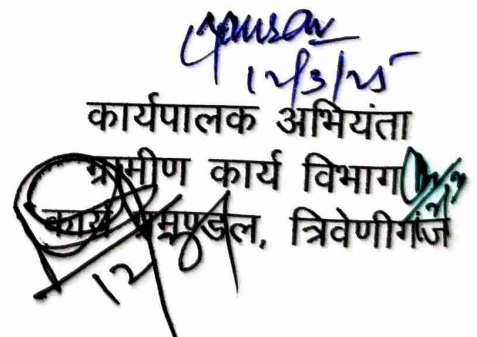 12/3/25
कार्यपालक अभियंता
ग्रामीण कार्य विभाग
कार्य प्रमण्डल, त्रिवेणीगंज